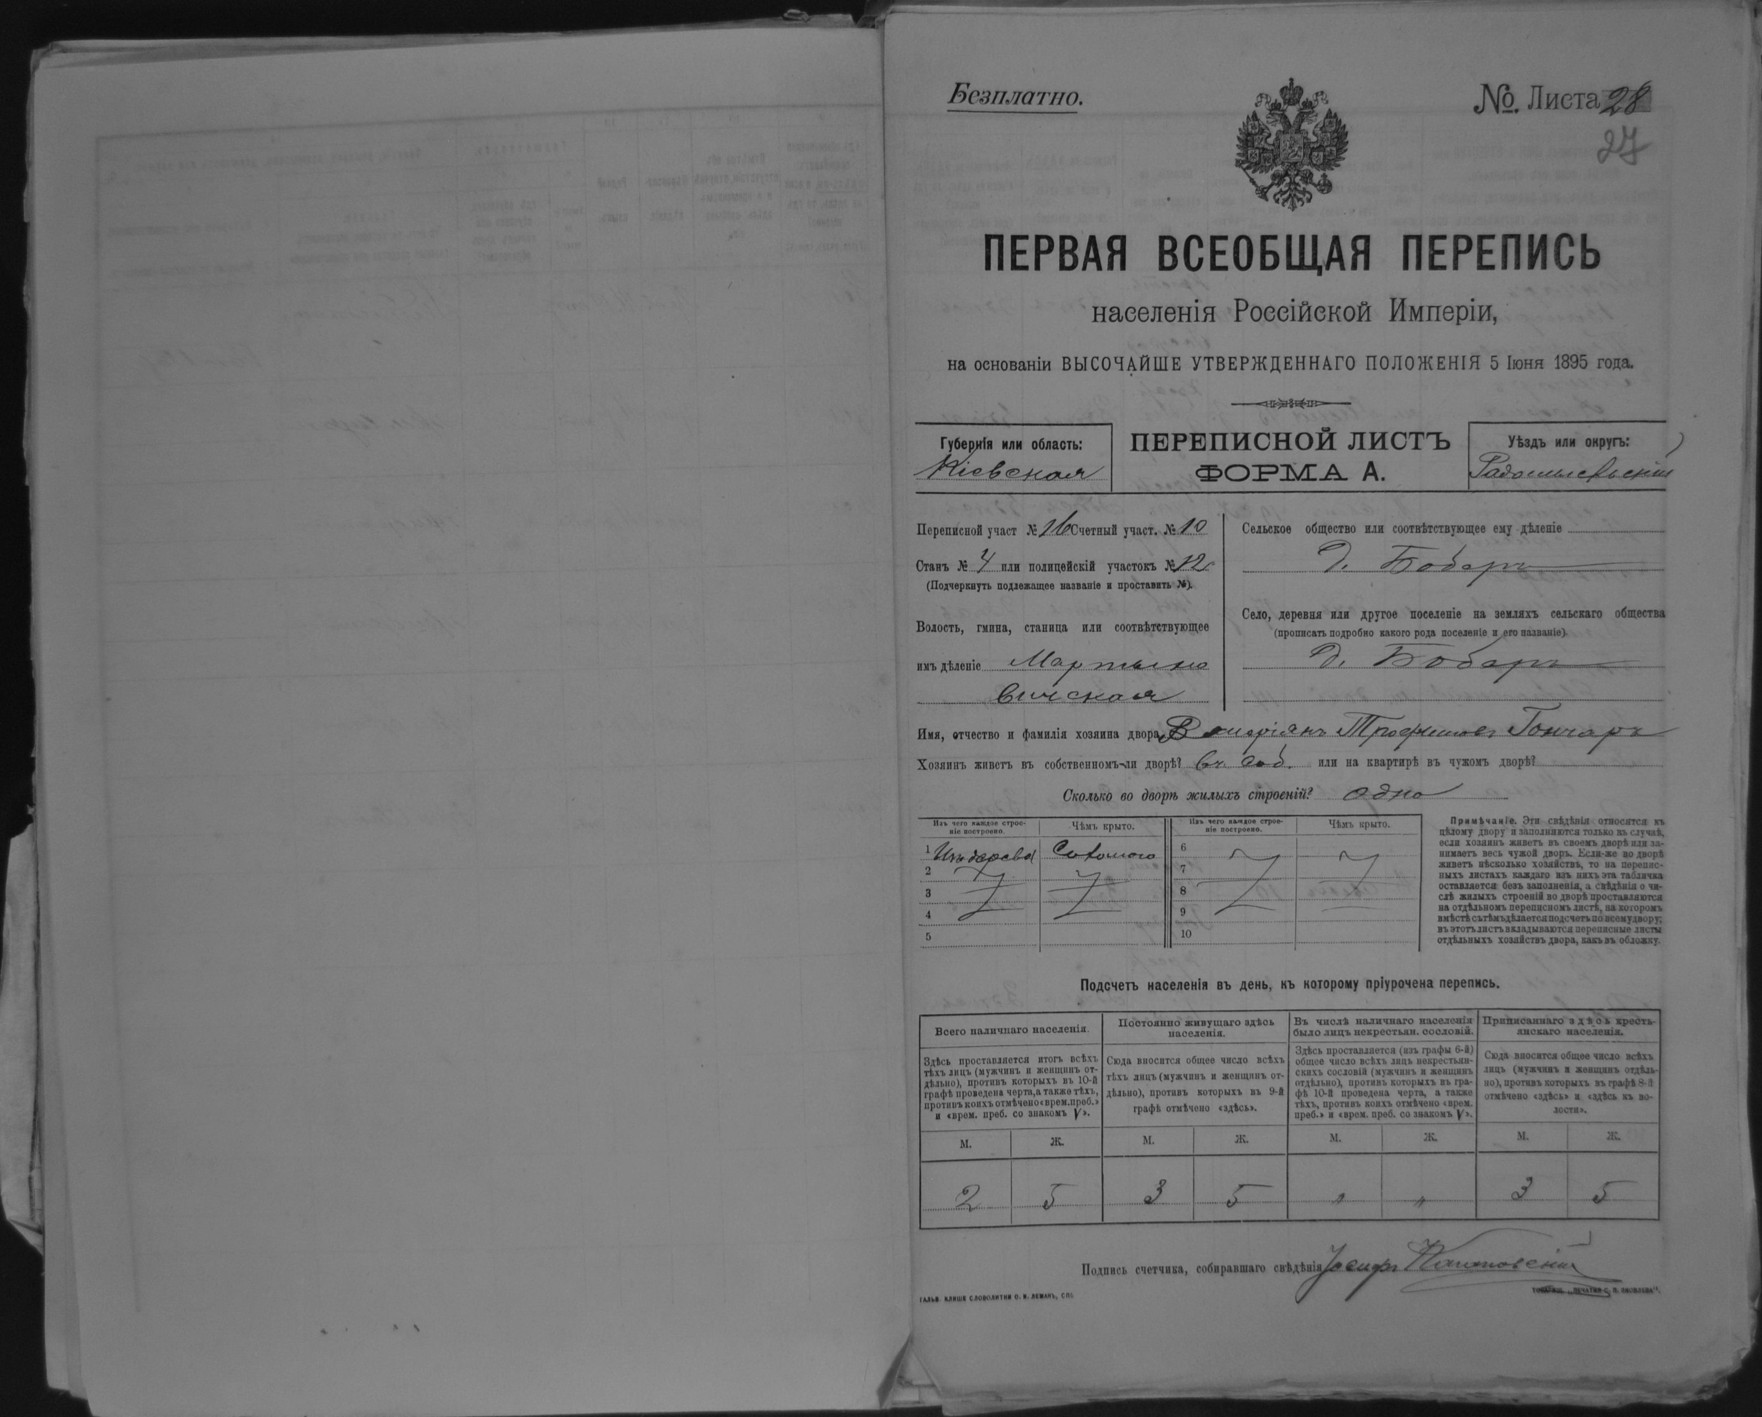 Безплатно.
№ Листа 28
27
ПЕРВАЯ ВСЕОБЩАЯ ПЕРЕПИСЬ
населенія Россійской Имперіи,
на основаніи ВЫСОЧАЙШЕ УТВЕРЖДЕННАГО ПОЛОЖЕНІЯ 5 Іюня 1895 года.
Губернія или область:
Кіевская
ПЕРЕПИСНОЙ ЛИСТЪ
ФОРМА А.
Уѣздъ или округъ:
Радомысльскій
Переписной участ № 16 Счетный участ. № 10
Станъ № 4 или полицейскій участокъ № 12
(Подчеркнуть подлежащее названіе и проставить №).
Волость, гмина, станица или соотвѣтствующее
имъ дѣленіе Мартыно
вичская
Сельское общество или соотвѣтствующее ему дѣленіе
Д. Бобёръ
Село, деревня или другое поселеніе на земляхъ сельскаго общества
(прописать подробно какого рода поселеніе и его названіе)
Д. Бобёръ
Имя, отчество и фамилія хозяина двора Трофимовъ Гончаръ
Хозяинъ живетъ въ собственномъ-ли дворѣ? въ соб. или на квартирѣ въ чужомъ дворѣ?
Сколько во дворѣ жилыхъ строеній? одно
Изъ чего каждое строе-
ніе построено.
Чѣмъ крыто.
Изъ чего каждое строе-
ніе построено.
Чѣмъ крыто.
1 Изъ дерева Соломою
2
3
4
5
6
7
8
9
10
Примѣчаніе. Эти свѣдѣнія относятся къ
цѣлому двору и заполняются только въ случаѣ,
если хозяинъ живетъ въ своемъ дворѣ или за-
нимаетъ весь чужой дворъ. Если-же во дворѣ
живетъ нѣсколько хозяйствъ, то на перепис-
ныхъ листахъ каждаго изъ нихъ эта табличка
оставляется безъ заполненія, а свѣдѣнія о чи-
слѣ жилыхъ строеній во дворѣ проставляются
на отдѣльномъ переписномъ листѣ, на которомъ
вмѣстѣ съ тѣмъ дѣлается подсчетъ по всему двору;
въ этотъ листъ вкладываются переписные листы
отдѣльныхъ хозяйствъ двора, какъ въ обложку.
Подсчетъ населенія въ день, къ которому пріурочена перепись.
Всего наличнаго населенія.
Здѣсь проставляется итогъ всѣхъ
тѣхъ лицъ (мужчинъ и женщинъ от-
дѣльно), противъ которыхъ въ 10-й
графѣ проведена черта, а также тѣхъ,
противъ коихъ отмѣчено «врем. преб.»
и «врем. преб. со знакомъ V».
Постоянно живущаго здѣсь
населенія.
Сюда вносится общее число всѣхъ
тѣхъ лицъ (мужчинъ и женщинъ от-
дѣльно), противъ которыхъ въ 9-й
графѣ отмѣчено «здѣсь».
Въ числѣ наличнаго населенія
было лицъ некрестьян. сословій.
Здѣсь проставляется (изъ графы 6-й)
общее число всѣхъ лицъ некрестьян-
скихъ сословій (мужчинъ и женщинъ
отдѣльно), противъ которыхъ въ гра-
фѣ 10-й проведена черта, а также
тѣхъ, противъ коихъ отмѣчено «врем.
преб.» и «врем. преб. со знакомъ V».
Приписаннаго здѣсь кресть-
янскаго населенія.
Сюда вносится общее число всѣхъ
лицъ (мужчинъ и женщинъ отдѣль-
но), противъ которыхъ въ графѣ 8-й
отмѣчено «здѣсь» и «здѣсь въ во-
лости».
М. Ж. М. Ж. М. Ж. М. Ж.
2 5 3 5 „ „ 3 5
Подпись счетчика, собиравшаго свѣдѣнія Іосифъ
ГАЛЬВ. КЛИШЕ СЛОВОЛИТНИ О. И. ЛЕМАНЪ, СПБ.